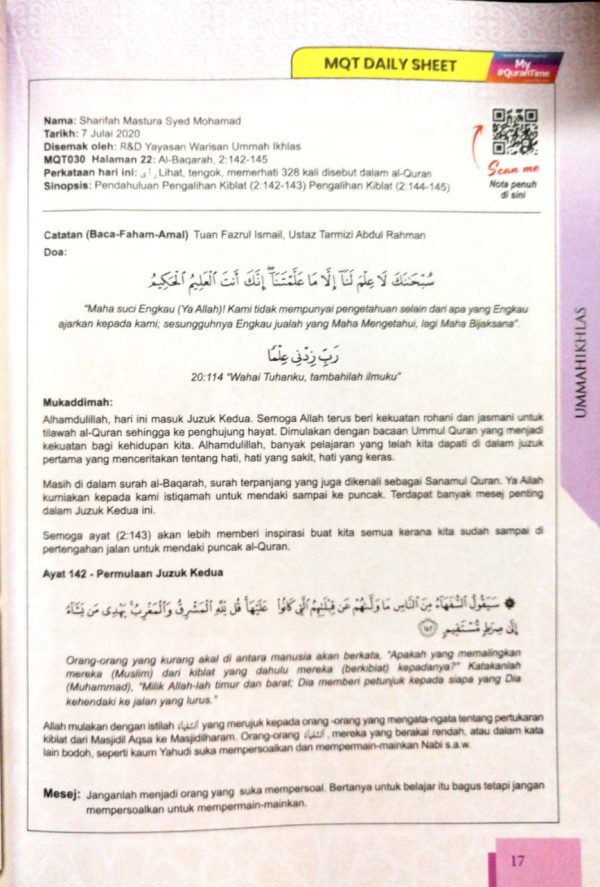 MQT DAILY SHEET
My
#QuranTime
Nama: Sharifah Mastura Syed Mohamad
Tarikh: 7 Julai 2020
Disemak oleh: R&D Yayasan Warisan Ummah Ikhlas
MQT030 Halaman 22: Al-Baqarah, 2:142-145
Perkataan hari ini: رأى Lihat, tengok, memerhati 328 kali disebut dalam al-Quran
Sinopsis: Pendahuluan Pengalihan Kiblat (2:142-143) Pengalihan Kiblat (2:144-145)
Scan me
Nota penuh
di sini
Catatan (Baca-Faham-Amal) Tuan Fazrul Ismail, Ustaz Tarmizi Abdul Rahman
Doa:
سُبْحَـٰنَكَ لَا عِلْمَ لَنَآ إِلَّا مَا عَلَّمْتَنَآ ۖ إِنَّكَ أَنتَ ٱلْعَلِيمُ ٱلْحَكِيمُ
"Maha suci Engkau (Ya Allah)! Kami tidak mempunyai pengetahuan selain dari apa yang Engkau
ajarkan kepada kami; sesungguhnya Engkau jualah yang Maha Mengetahui, lagi Maha Bijaksana".
رَبِّ زِدْنِي عِلْمًا
20:114 "Wahai Tuhanku, tambahilah ilmuku"
Mukaddimah:
Alhamdulillah, hari ini masuk Juzuk Kedua. Semoga Allah terus beri kekuatan rohani dan jasmani untuk
tilawah al-Quran sehingga ke penghujung hayat. Dimulakan dengan bacaan Ummul Quran yang menjadi
kekuatan bagi kehidupan kita. Alhamdulillah, banyak pelajaran yang telah kita dapati di dalam juzuk
pertama yang menceritakan tentang hati, hati yang sakit, hati yang keras.
Masih di dalam surah al-Baqarah, surah terpanjang yang juga dikenali sebagai Sanamul Quran. Ya Allah
kurniakan kepada kami istiqamah untuk mendaki sampai ke puncak. Terdapat banyak mesej penting
dalam Juzuk Kedua ini.
Semoga ayat (2:143) akan lebih memberi inspirasi buat kita semua kerana kita sudah sampai di
pertengahan jalan untuk mendaki puncak al-Quran.
Ayat 142 - Permulaan Juzuk Kedua
۞ سَيَقُولُ ٱلسُّفَهَآءُ مِنَ ٱلنَّاسِ مَا وَلَّىٰهُمْ عَن قِبْلَتِهِمُ ٱلَّتِى كَانُوا۟ عَلَيْهَا ۚ قُل لِّلَّهِ ٱلْمَشْرِقُ وَٱلْمَغْرِبُ ۚ يَهْدِى مَن يَشَآءُ
إِلَىٰ صِرَٰطٍ مُّسْتَقِيمٍ ﴿١٤٢﴾
Orang-orang yang kurang akal di antara manusia akan berkata, "Apakah yang memalingkan
mereka (Muslim) dari kiblat yang dahulu mereka (berkiblat) kepadanya?" Katakanlah
(Muhammad), "Milik Allah-lah timur dan barat; Dia memberi petunjuk kepada siapa yang Dia
kehendaki ke jalan yang lurus."
Allah mulakan dengan istilah ٱلسُّفَهَآءُ yang merujuk kepada orang -orang yang mengata-ngata tentang pertukaran
kiblat dari Masjidil Aqsa ke Masjidilharam. Orang-orang ٱلسُّفَهَآءُ, mereka yang berakal rendah, atau dalam kata
lain bodoh, seperti kaum Yahudi suka mempersoalkan dan mempermain-mainkan Nabi s.a.w.
Mesej: Janganlah menjadi orang yang suka mempersoal. Bertanya untuk belajar itu bagus tetapi jangan
mempersoalkan untuk mempermain-mainkan.
UMMAHIKHLAS
17